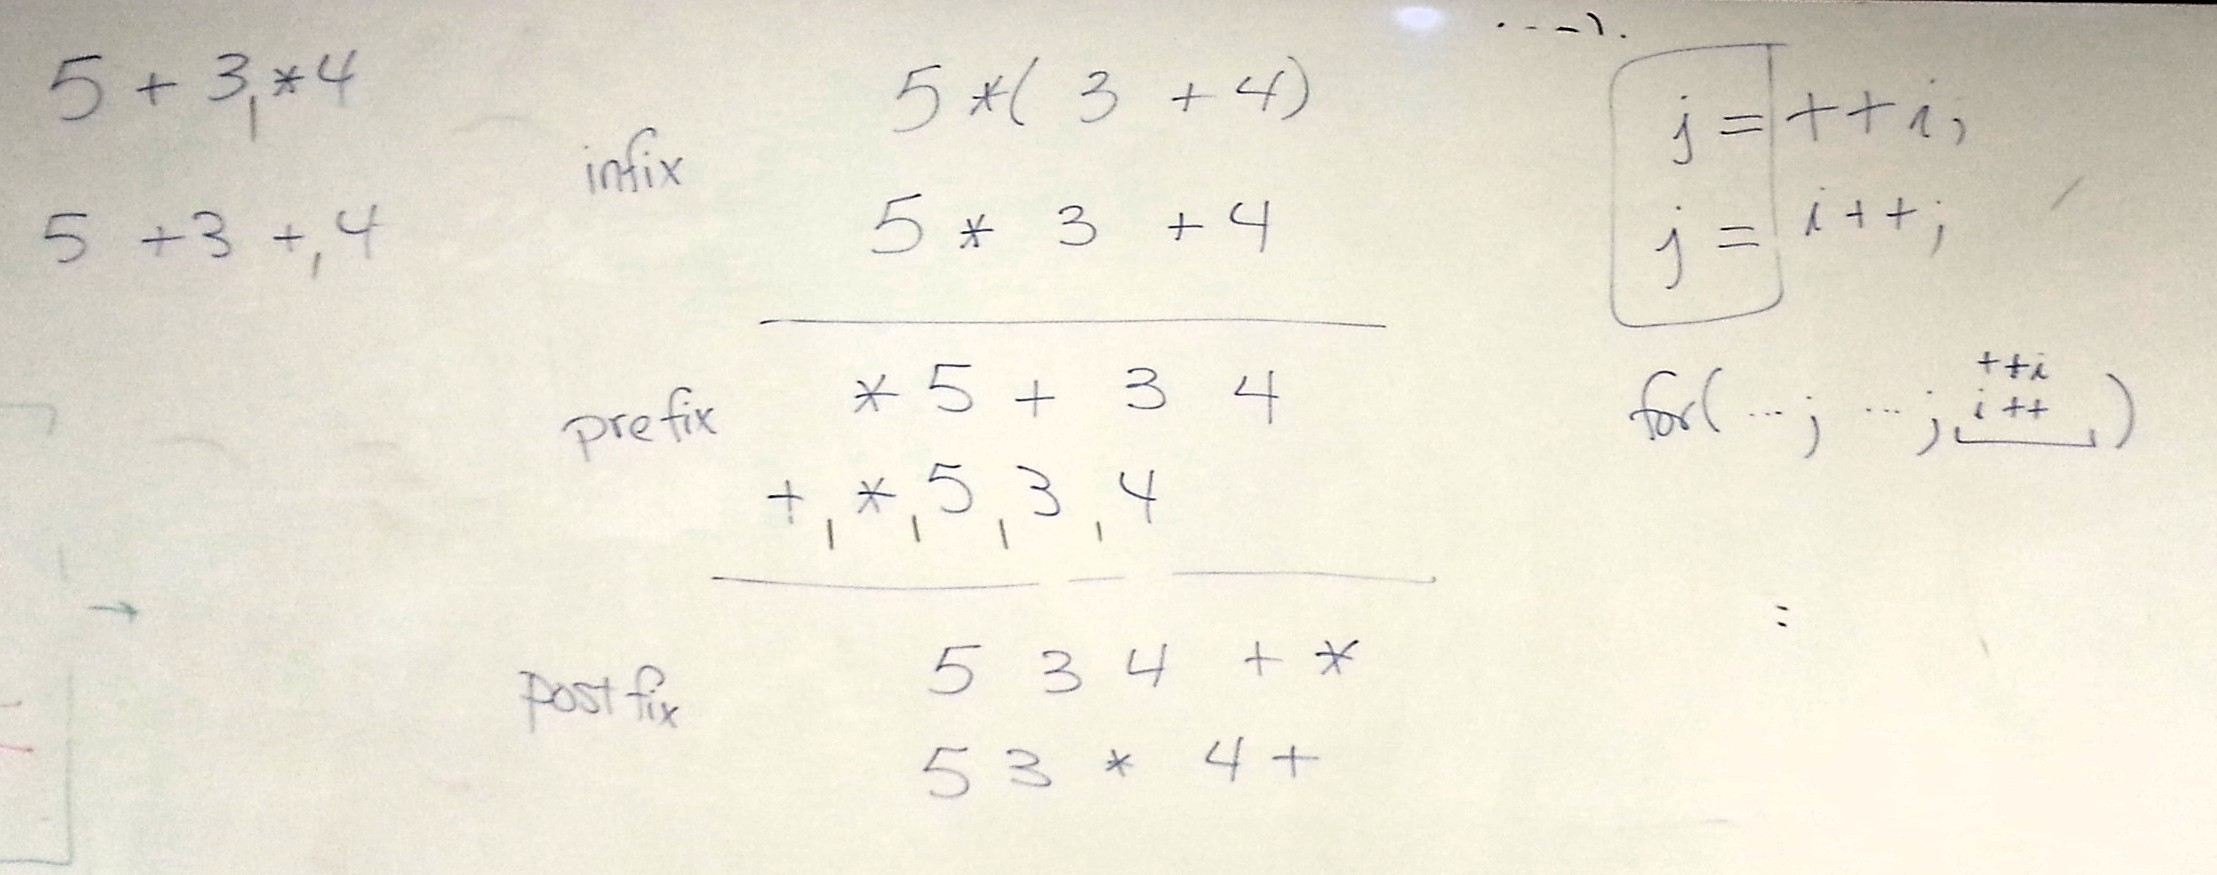 5 + 3 * 4
5 + 3 + 4
infix
5 * ( 3 + 4 )
5 * 3 + 4
prefix
* 5 + 3 4
+ * 5 3 4
postfix
5 3 4 + *
5 3 * 4 +
j = ++i;
j = i++;
++i
for( ...; ...; i++ )